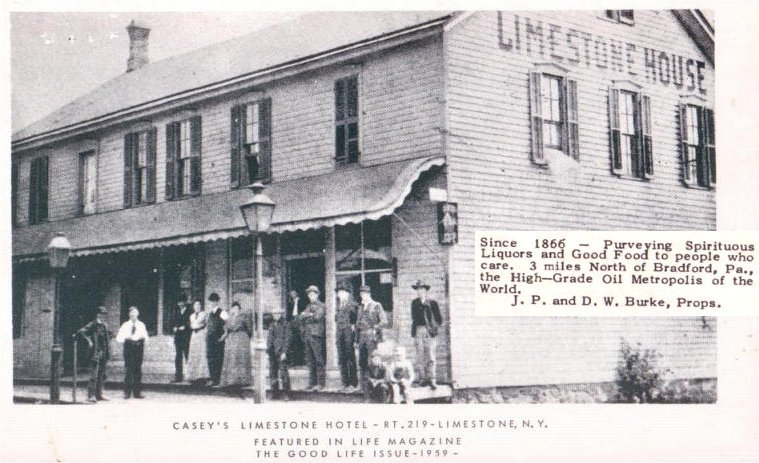 LIMESTONE HOUSE
Since 1866 — Purveying Spirituous
Liquors and Good Food to people who
care. 3 miles North of Bradford, Pa.,
the High—Grade Oil Metropolis of the
World.
J. P. and D. W. Burke, Props.
CASEY'S LIMESTONE HOTEL - RT. 219 - LIMESTONE, N.Y.
FEATURED IN LIFE MAGAZINE
THE GOOD LIFE ISSUE - 1959 -